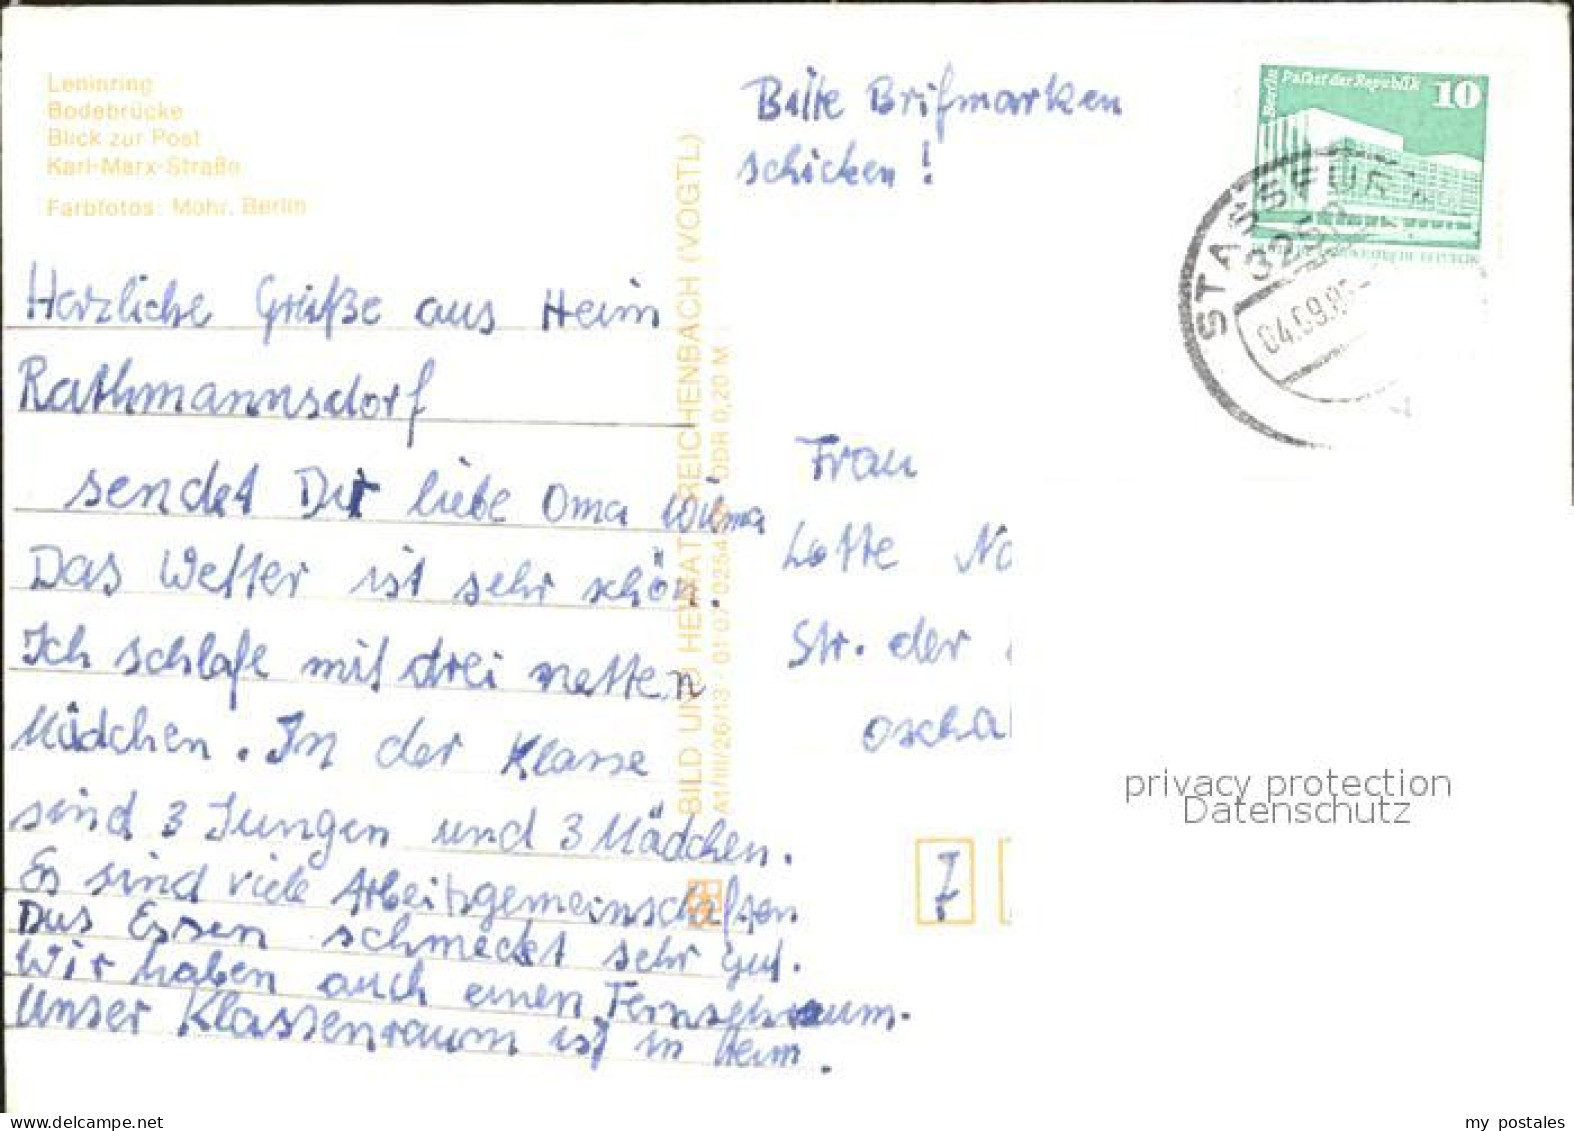 Leninring
Bodebrücke
Blick zur Post
Karl-Marx-Straße
Farbfotos: Mohr, Berlin
Herzliche Grüße aus Heim
Rathmannsdorf
sendet Dir liebe Oma Wilma
Das Wetter ist sehr schön.
Ich schlafe mit drei netten
Mädchen. In der Klasse
sind 3 Jungen und 3 Mädchen.
Es sind viele Arbeitsgemeinschaften
Das Essen schmeckt sehr gut.
Wir haben auch einen Fernsehraum.
Unser Klassenraum ist im Heim.
BILD UND HEIMAT REICHENBACH (VOGTL)
A1/III/26/13 01 07 0254 DDR 0,20 M
Bitte Brifmarken
schicken!
Berlin Palast der Republik 10
STASSFURT
3250
04.09.8
Frau
Lotte No
Str. der
oscha
7
privacy protection
Datenschutz
my postales